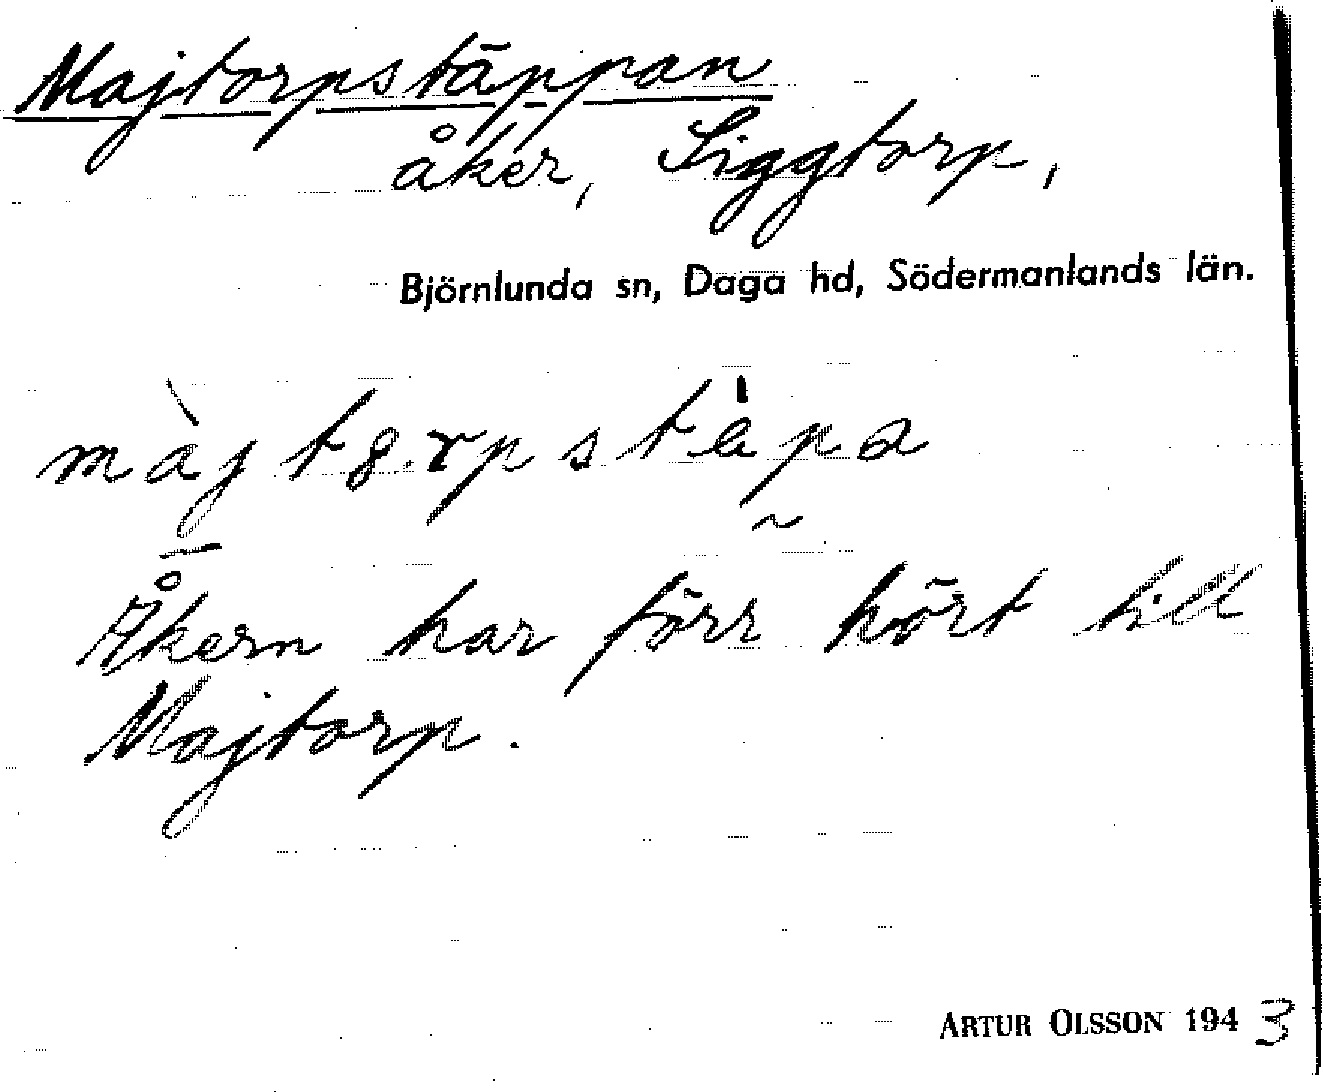 Majtorpstäppan
åker, Siggtorp,
Björnlunda sn, Daga hd, Södermanlands län.
Åkern har förr hört till
Majtorp.
ARTUR OLSSON 1943